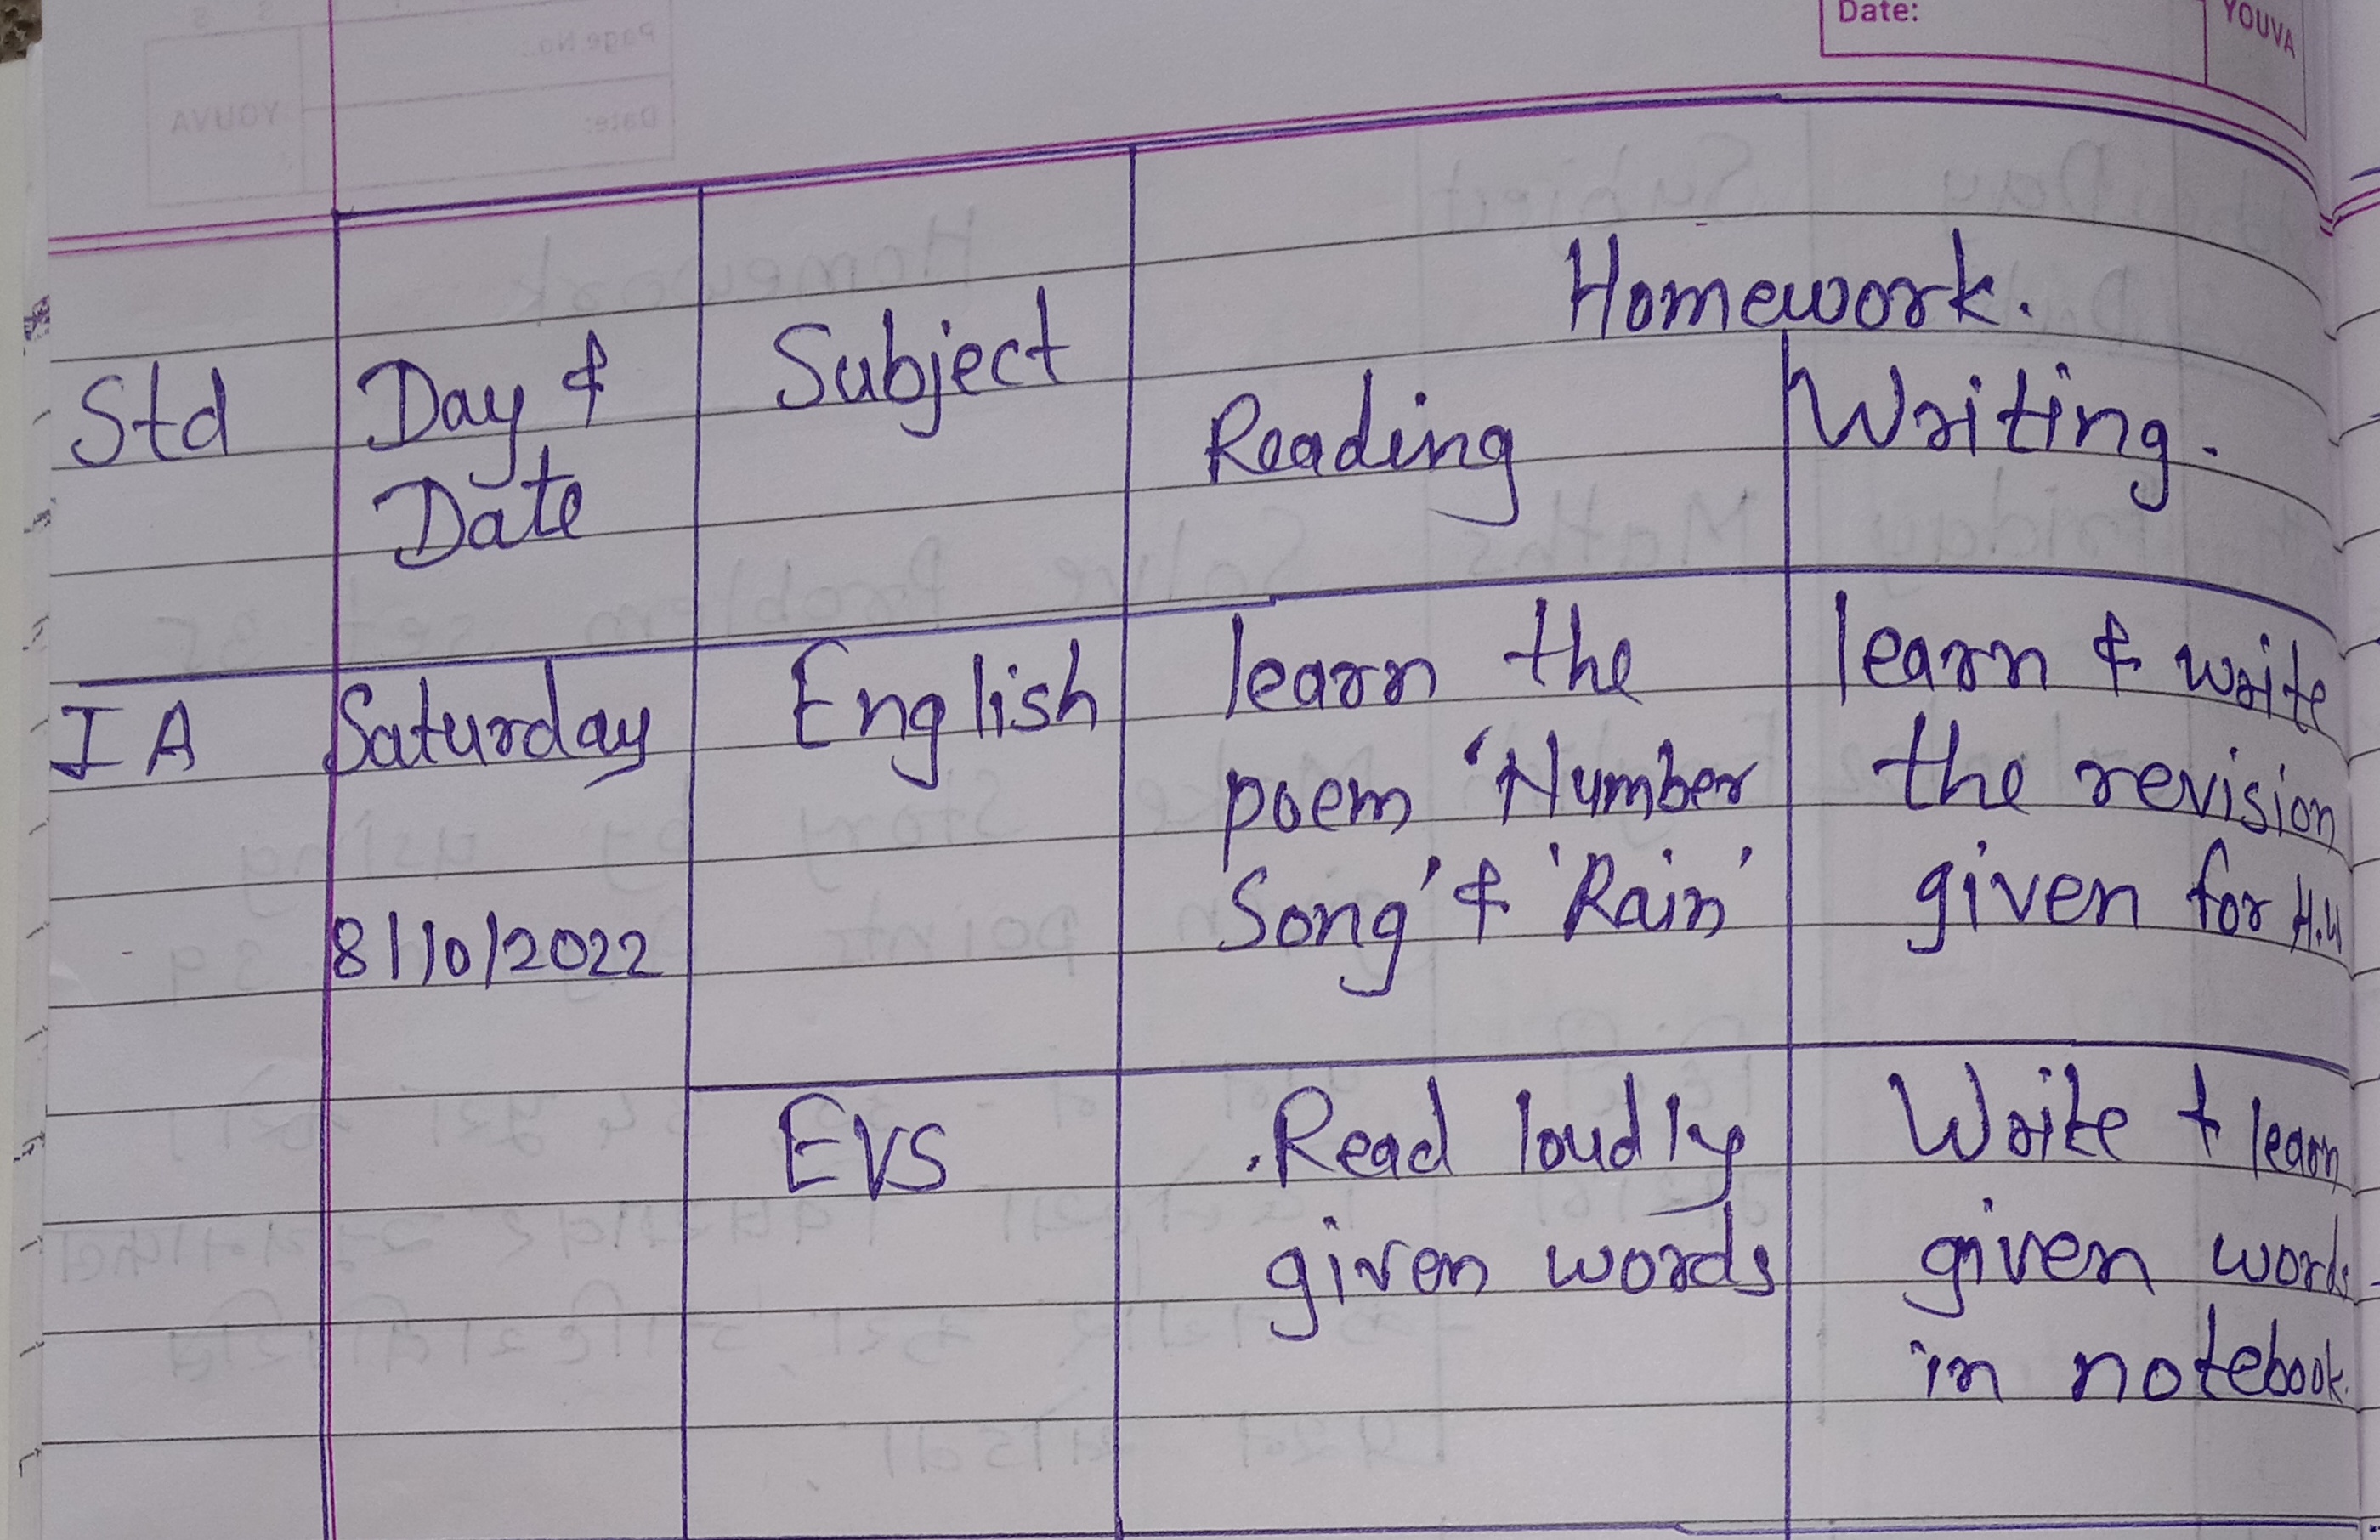 Date:
YOUVA
Homework.
Std Day & Subject Reading Writing.
Date
I A Saturday English learn the learn & write
poem 'Number the revision
Song' & 'Rain' given for H.W
8/10/2022
EVS Read loudly Write & learn
given words given words
in notebook.